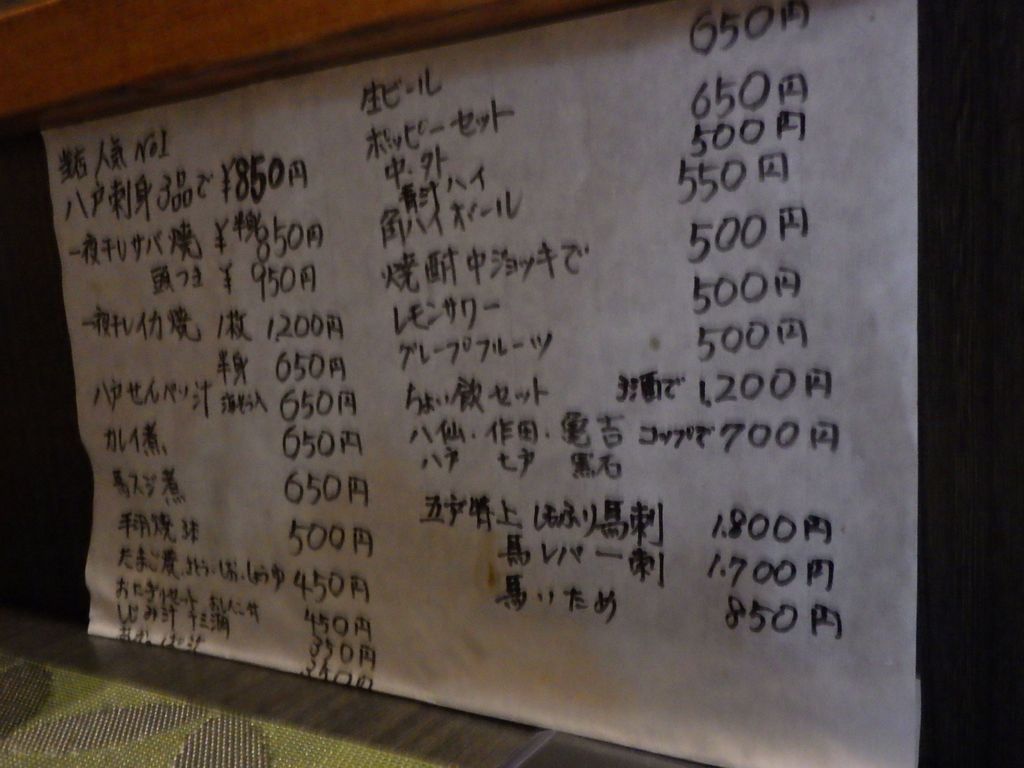 当店人気 No1
八戸刺身3品で ¥850円
一夜干しサバ焼 ¥半身850円
頭つき ¥ 950円
一夜干しイカ焼 1枚 1,200円
半身 650円
八戸せんべい汁 650円
カレイ煮 650円
馬スジ煮 650円
手羽焼 500円
たまご焼 さとう・しお・しょうゆ 450円
450円
しじみ汁 十三湖 350円
生ビール 650円
ホッピーセット 650円
中・外 500円
青汁ハイ
角ハイボール 550円
焼酎中ジョッキで 500円
レモンサワー 500円
グレープフルーツ 500円
ちょい飲セット お酒で 1,200円
八仙・作田・亀吉 コップで 700円
八戸 七戸 黒石
五戸特上 しもふり馬刺 1,800円
馬レバー刺 1,700円
馬いため 850円